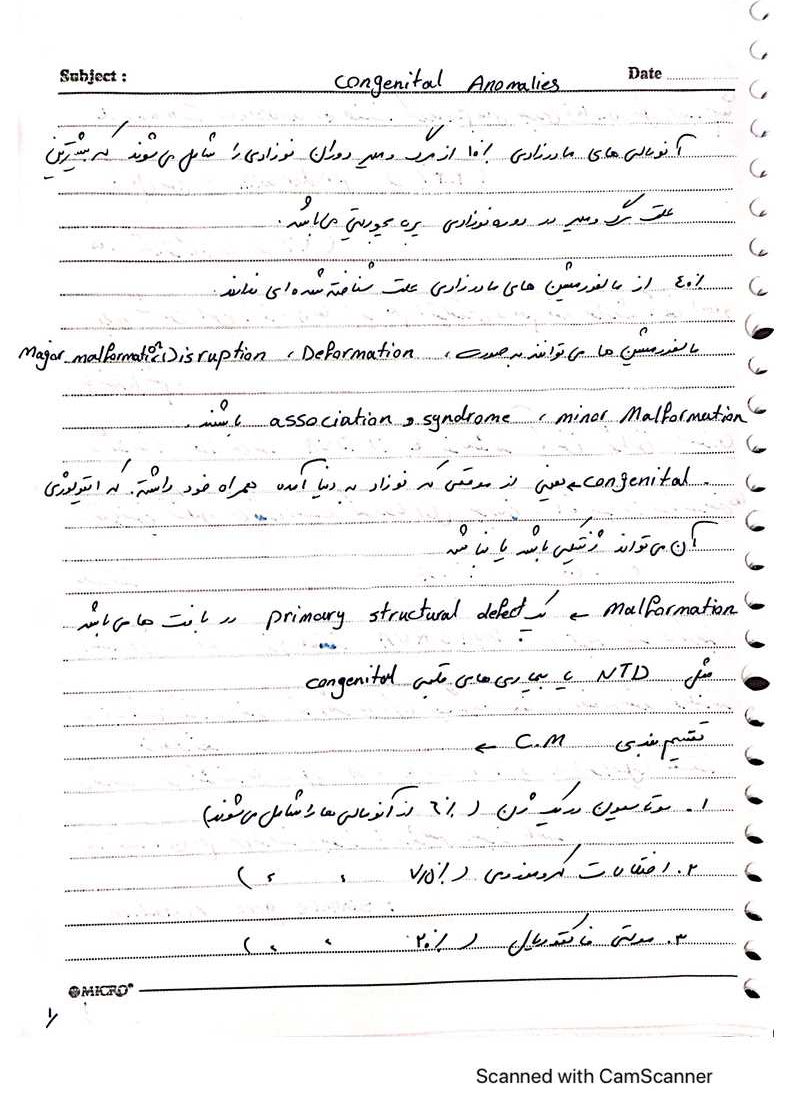 Subject :
Congenital Anomalies
Date
آنومالی های مادرزادی ٪۱۰ از مرگ و میر دوران نوزادی را شامل می شوند که بیشترین
علت مرگ و میر در دوره نوزادی می باشد.
٪۴۰ از مالفورمیشن های مادرزادی علت شناخته شده ای ندارند.
مالفورمیشن ها می توانند به صورت ، Deformation ، Disruption ، Major malformation
minor Malformation ، syndrome و association باشند.
congenital ← یعنی از موقعی که نوزاد به دنیا آمده همراه خود داشته. که اتیولوژی
آن می تواند ژنتیکی باشد یا نباشد
Malformation ← یک primary structural defect در بافت ها می باشد
مثل NTD یا بیماری های قلبی congenital
تقسیم بندی C.M ←
۱. موتاسیون در یک ژن ( ٪۶ از آنومالی ها را شامل می شوند)
۲. اختلالات کروموزومی ( ٪۷/۵ " " )
۳. مولتی فاکتوریال ( ٪۲۰ " " )
MICRO
۱/
Scanned with CamScanner